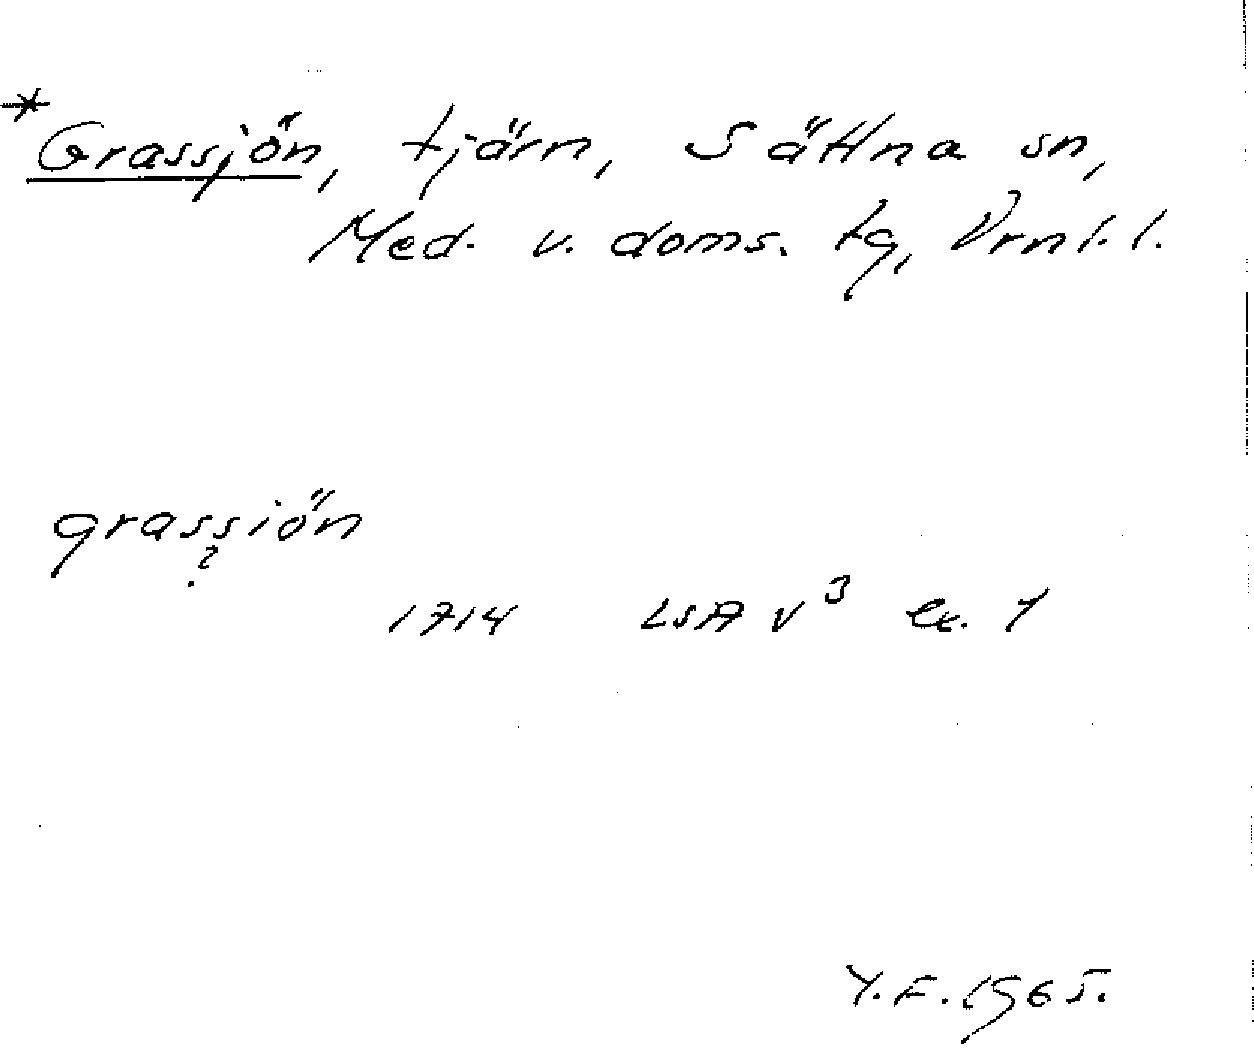 *Grassjön, tjärn, Sättna sn,
Med. v. doms. tg, Vrnl. l.
grassiön
?
1714 LSA V³ Le. 1
Y.F. 1965.